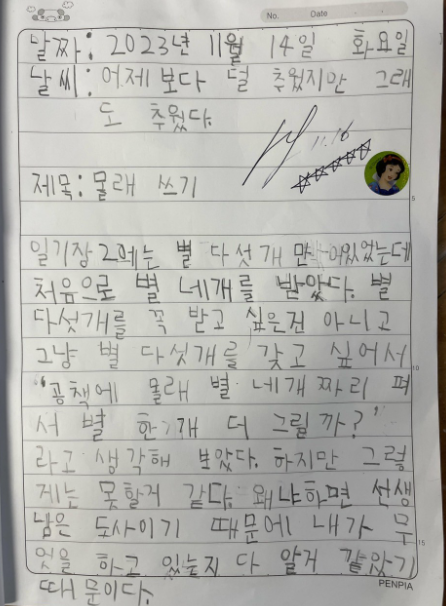 No. Date
날짜: 2023년 11월 14일 화요일
날씨: 어제 보다 덜 추웠지만 그래
도 추웠다.
11.16
제목: 몰래 쓰기
일기장 2에는 별 다섯개 만 있었는데
처음으로 별 네개를 받았다. 별
다섯개를 꼭 받고 싶은건 아니고
그냥 별 다섯개를 갖고 싶어서
"공책에 몰래 별 네개 짜리 펴
서 별 한개 더 그릴까?"
라고 생각해 보았다. 하지만 그렇
게는 못할거 같다. 왜냐하면 선생
님은 도사이기 때문에 내가 무
엇을 하고 있는지 다 알거 같았기
때문이다.
5
10
15
PENPIA